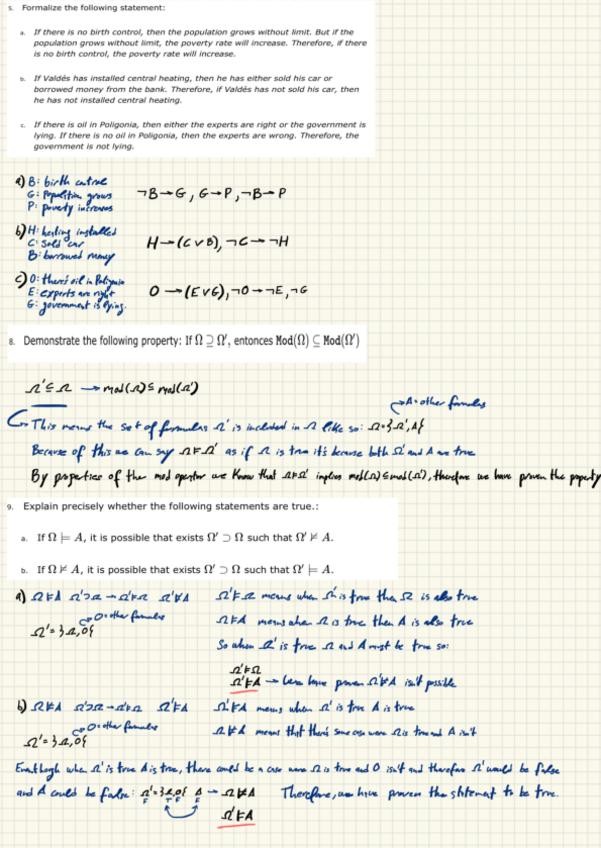 5. Formalize the following statement:
a. If there is no birth control, then the population grows without limit. But if the
population grows without limit, the poverty rate will increase. Therefore, if there
is no birth control, the poverty rate will increase.
b. If Valdés has installed central heating, then he has either sold his car or
borrowed money from the bank. Therefore, if Valdés has not sold his car, then
he has not installed central heating.
c. If there is oil in Poligonia, then either the experts are right or the government is
lying. If there is no oil in Poligonia, then the experts are wrong. Therefore, the
government is not lying.
a) B: birth control
G: Population grows
P: poverty increases
¬B→G, G→P, ¬B→P
b) H: heating installed
C: Sold car
B: borrowed money
H→(C∨B), ¬C→¬H
c) O: there's oil in Poligonia
E: experts are right
G: government is lying.
O→(E∨G), ¬O→¬E, ¬G
8. Demonstrate the following property: If Ω ⊇ Ω', entonces Mod(Ω) ⊆ Mod(Ω')
Ω'⊆Ω → mod(Ω)⊆mod(Ω')
A=other formulas
This means the set of formulas Ω' is included in Ω like so: Ω={Ω',A}
Because of this we can say Ω⊨Ω' as if Ω is true it's because both Ω' and A are true
By properties of the mod operator we know that Ω⊨Ω' implies mod(Ω)⊆mod(Ω'), therefore we have proven the property
9. Explain precisely whether the following statements are true.:
a. If Ω ⊨ A, it is possible that exists Ω' ⊃ Ω such that Ω' ⊭ A.
b. If Ω ⊭ A, it is possible that exists Ω' ⊃ Ω such that Ω' ⊨ A.
a) Ω⊨A Ω'⊃Ω→Ω'⊨Ω Ω'⊭A
O=other formulas
Ω'={Ω,O}
Ω'⊨Ω means when Ω' is true then Ω is also true
Ω⊨A means when Ω is true then A is also true
So when Ω' is true Ω and A must be true so:
Ω'⊨Ω
Ω'⊨A → we have proven Ω'⊭A isn't possible
b) Ω⊭A Ω'⊃Ω→Ω'⊨Ω Ω'⊨A
O=other formulas
Ω'={Ω,O}
Ω'⊨A means when Ω' is true A is true
Ω⊭A means that there's some case were Ω is true and A isn't
Even though when Ω' is true A is true, there could be a case were Ω is true and O isn't and therefore Ω' would be false
and A could be false: Ω'={Ω,O} A → Ω⊭A Therefore, we have proven the statement to be true.
F T F F
Ω'⊨A